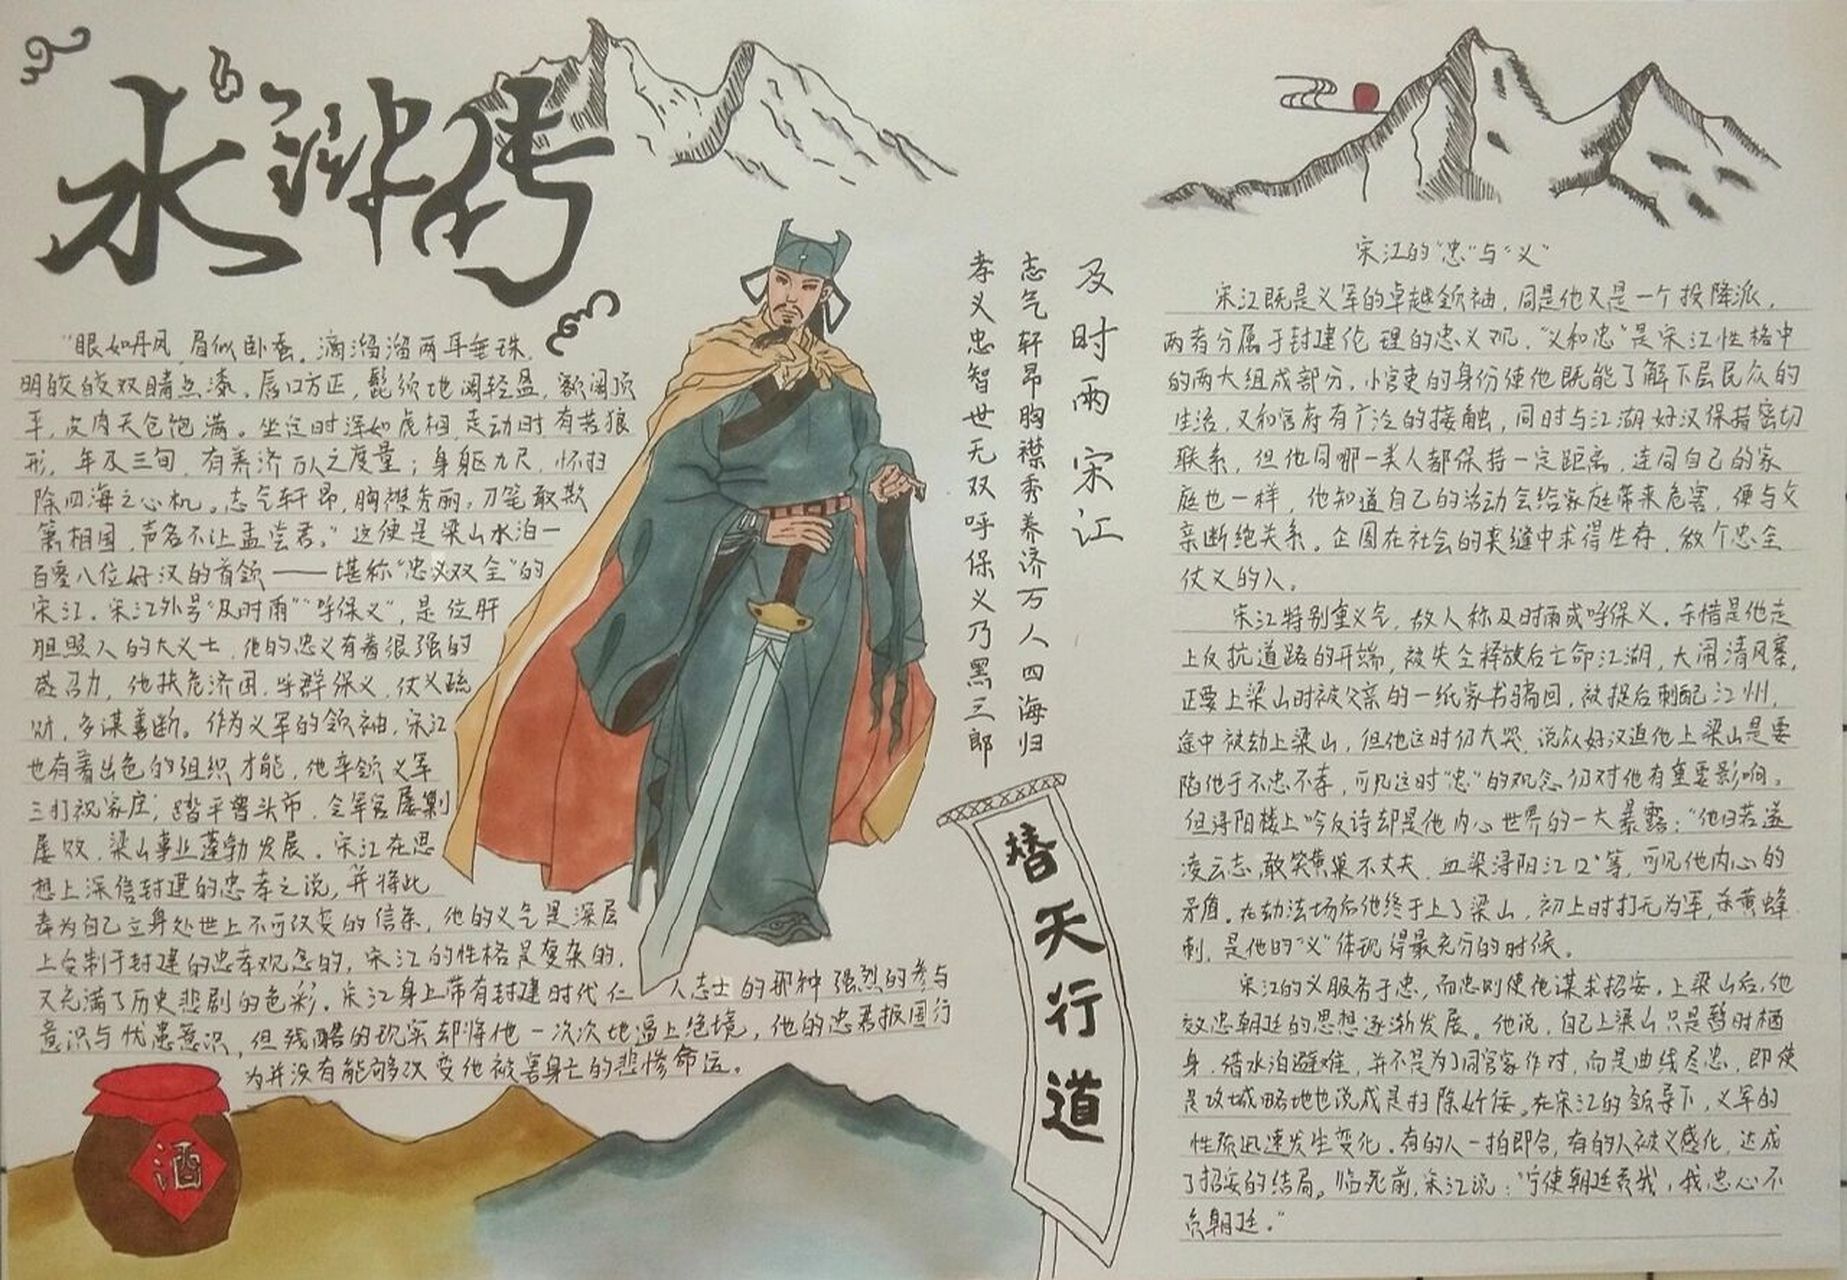 水浒传
"眼如丹凤,眉似卧蚕。滴溜溜两耳垂珠,
明皎皎双睛点漆。唇口方正,髭须地阁轻盈,额阔顶
平,皮肉天仓饱满。坐定时浑如虎相,走动时有若狼
形,年及三旬,有养济万人之度量;身躯九尺,怀扫
除四海之心机。志气轩昂,胸襟秀丽。刀笔敢欺
萧相国,声名不让孟尝君。"这便是梁山水泊一
百零八位好汉的首领——堪称"忠义双全"的
宋江。宋江外号"及时雨""呼保义",是位肝
胆照人的大义士,他的忠义有着很强的
感召力,他扶危济困,乐群保义,仗义疏
财,多谋善断。作为义军的领袖,宋江
也有着出色的组织才能,他率领义军
三打祝家庄;踏平曾头市,令军官屡剿
屡败,梁山事业蓬勃发展。宋江在思
想上深信封建的忠孝之说,并将此
奉为自己立身处世上不可改变的信条,他的义气是深层
上受制于封建的忠孝观念的,宋江的性格是复杂的,
又充满了历史悲剧的色彩。宋江身上带有封建时代仁人志士的那种强烈的参与
意识与忧患意识,但残酷的现实却将他一次次地逼上绝境,他的忠君报国行
为并没有能够改变他被害身亡的悲惨命运。
酒
及时雨宋江
志气轩昂胸襟秀养济万人四海归
孝义忠智世无双呼保义乃黑三郎
替天行道
宋江的"忠"与"义"
宋江既是义军的卓越领袖,同是他又是一个投降派,
两者分属于封建伦理的忠义观,"义和忠"是宋江性格中
的两大组成部分,小官吏的身份使他既能了解下层民众的
生活,又和官府有广泛的接触,同时与江湖好汉保持密切
联系,但他同哪一类人都保持一定距离,连同自己的家
庭也一样,他知道自己的活动会给家庭带来危害,便与父
亲断绝关系。企图在社会的夹缝中求得生存,做个忠全
仗义的人。
宋江特别重义气,故人称及时雨或呼保义。杀惜是他走
上反抗道路的开端,被失全释放后亡命江湖,大闹清风寨,
正要上梁山时被父亲的一纸家书骗回,被捉后刺配江州,
途中被劫上梁山,但他这时仍大哭,说众好汉逼他上梁山是要
陷他于不忠不孝,可见这时"忠"的观念仍对他有重要影响。
但浔阳楼上吟反诗却是他内心世界的一大暴露:"他日若遂
凌云志,敢笑黄巢不丈夫,血染浔阳江口"等,可见他内心的
矛盾。在劫法场后他终于上了梁山,初上时打无为军,杀黄蜂
刺,是他的"义"体现得最充分的时候。
宋江的义服务于忠,而忠则使他谋求招安。上梁山后,他
效忠朝廷的思想逐渐发展。他说,自己上梁山只是暂时栖
身,借水泊避难,并不是为了同官家作对,而是曲线尽忠,即使
是攻城略地也说成是扫除奸佞。在宋江的领导下,义军的
性质迅速发生变化。有的人一拍即合,有的人被义感化,达成
了招安的结局。临死前,宋江说:"宁使朝廷负我,我忠心不
负朝廷。"